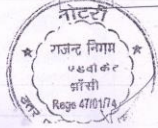 नोटरी
गजेन्द्र निगम
एडवोकेट
झाँसी
Rego 47/01/74
उत्तर